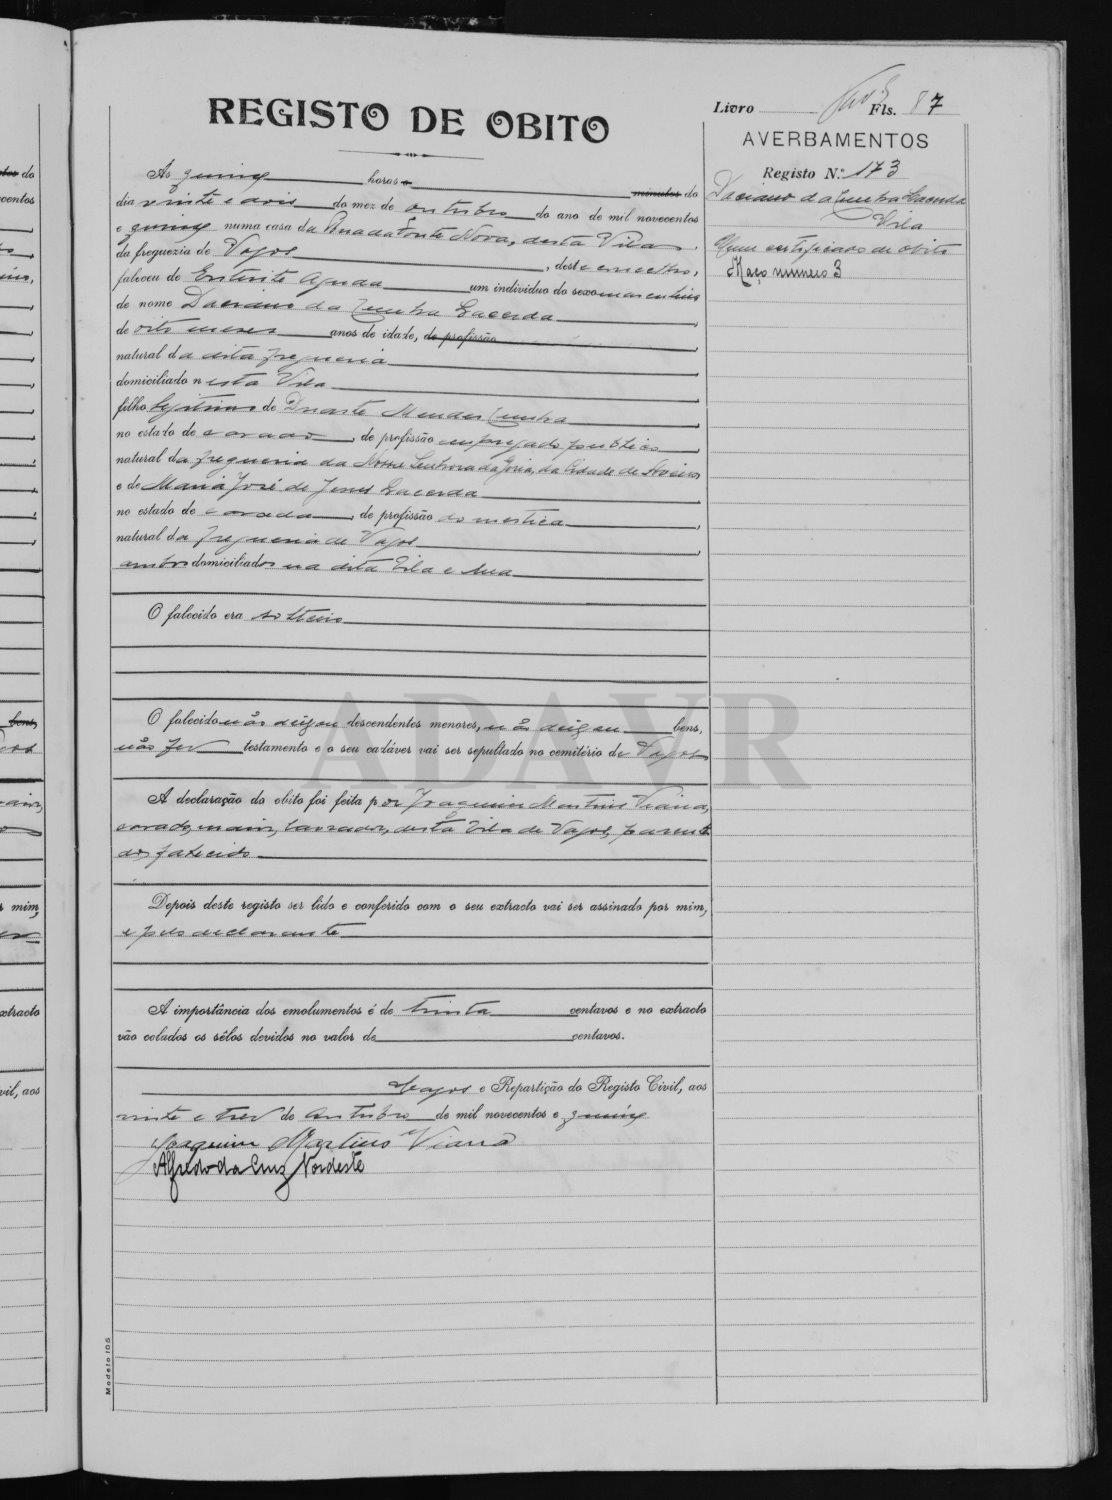 REGISTO DE OBITO
Livro Fls. 87
AVERBAMENTOS
Registo N.º 173
Daciano da Cunha Lacerda
Vila
certificado de obito
Maço numero 3
Às quinze horas e minutos do
dia vinte e dois do mez de outubro do ano de mil novecentos
e quinze numa casa da Rua da Fonte Nova, desta Vila
da freguezia de Vagos, deste concelho,
faleceu de Enterite Aguda um individuo do sexo masculino
de nome Daciano da Cunha Lacerda
de oito meses anos de idade, de profissão
natural da dita freguesia
domiciliado nesta Vila
filho legitimo de Duarte Mendes Cunha
no estado de casado, de profissão empregado publico
natural da freguesia da Nossa Senhora da Gloria, da Cidade de Aveiro
e de Maria José de Lacerda
no estado de casada, de profissão domestica
natural da freguesia de Vagos
ambos domiciliados na dita Vila e Rua
O falecido era solteiro
O falecido não deixou descendentes menores, não deixou bens,
não fez testamento e o seu cadáver vai ser sepultado no cemitério de Vagos
A declaração do obito foi feita por Joaquim Martins Viana,
casado, maior, lavrador, desta Vila de Vagos, parente
do falecido
Depois deste registo ser lido e conferido com o seu extracto vai ser assinado por mim,
e pelo declarante
A importância dos emolumentos é de trinta centavos e no extracto
vão colados os sêlos devidos no valor de centavos.
Vagos e Repartição do Registo Civil, aos
vinte e tres de outubro de mil novecentos e quinze
Joaquim Martins Viana
Alfredo da Cruz Nordeste
Modelo 105
ADAVR